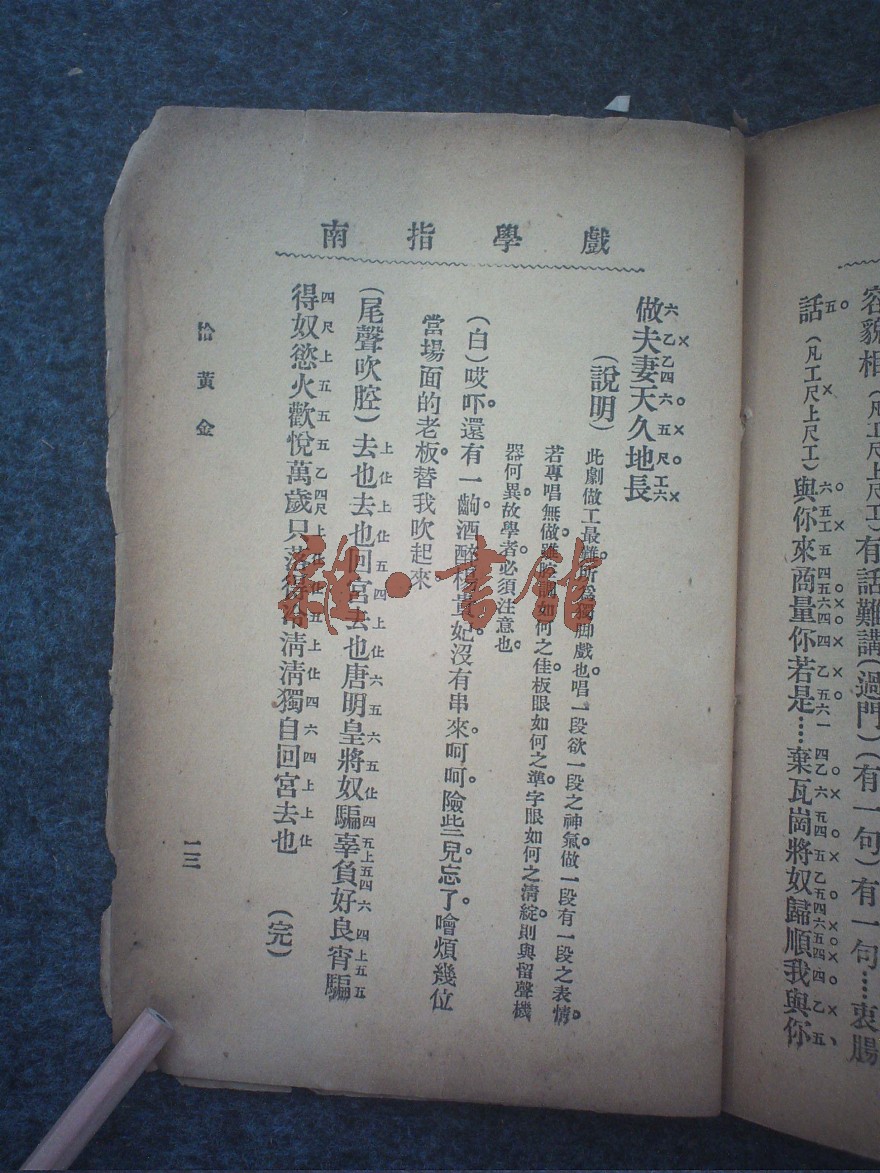 容貌相(凡工尺上尺工)有話難講(過門)(有一句)有一句……衷腸
話(凡工尺上尺工)與你來商量你若是……棄瓦崗將奴歸順我與你
戲學指南
做夫妻天久地長
六乙乙四六五尺工六
(說明)此劇做工最難。所為獨脚戲也。唱一段欲一段之神氣。做一段有一段之表情。
若專唱無做。雖腔調如何之佳。板眼如何之準。字眼如何之清綻。則與留聲機
器何異。故學者必須注意也。
(白)哎吓。還有一齣酒醉楊貴妃沒有串來。呵呵。險些兒忘了。噲煩幾位
當場面的老板。替我吹起來
(尾聲吹腔)去也去也回宮去也唐明皇將奴騙辜負好良宵騙
得奴慾火歡悅萬歲只落得冷清清獨自回宮去也 (完)
拾黃金
一三
雜·書館